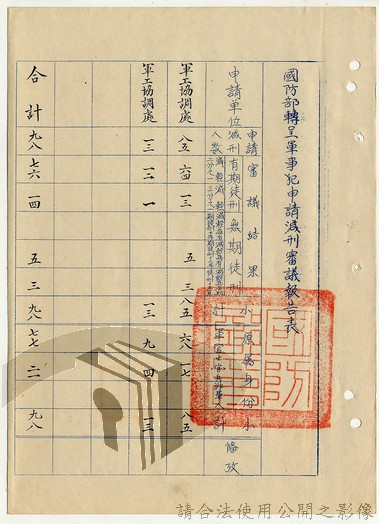 國防部轉呈軍事犯申請減刑審議報告表
申請單位
申請人數
審議結果
減刑
有期徒刑
無期徒刑
小計
原屬身份
小計
備攷
軍工協調處 八五 六四 一三 五 三 八五 六八 一七 八五
軍工協調處 一三 一二 一 一三 九 四 一三
合計 九八 七六 一四 五 三 九八 七七 二一 九八
國防部印
請合法使用公開之影像